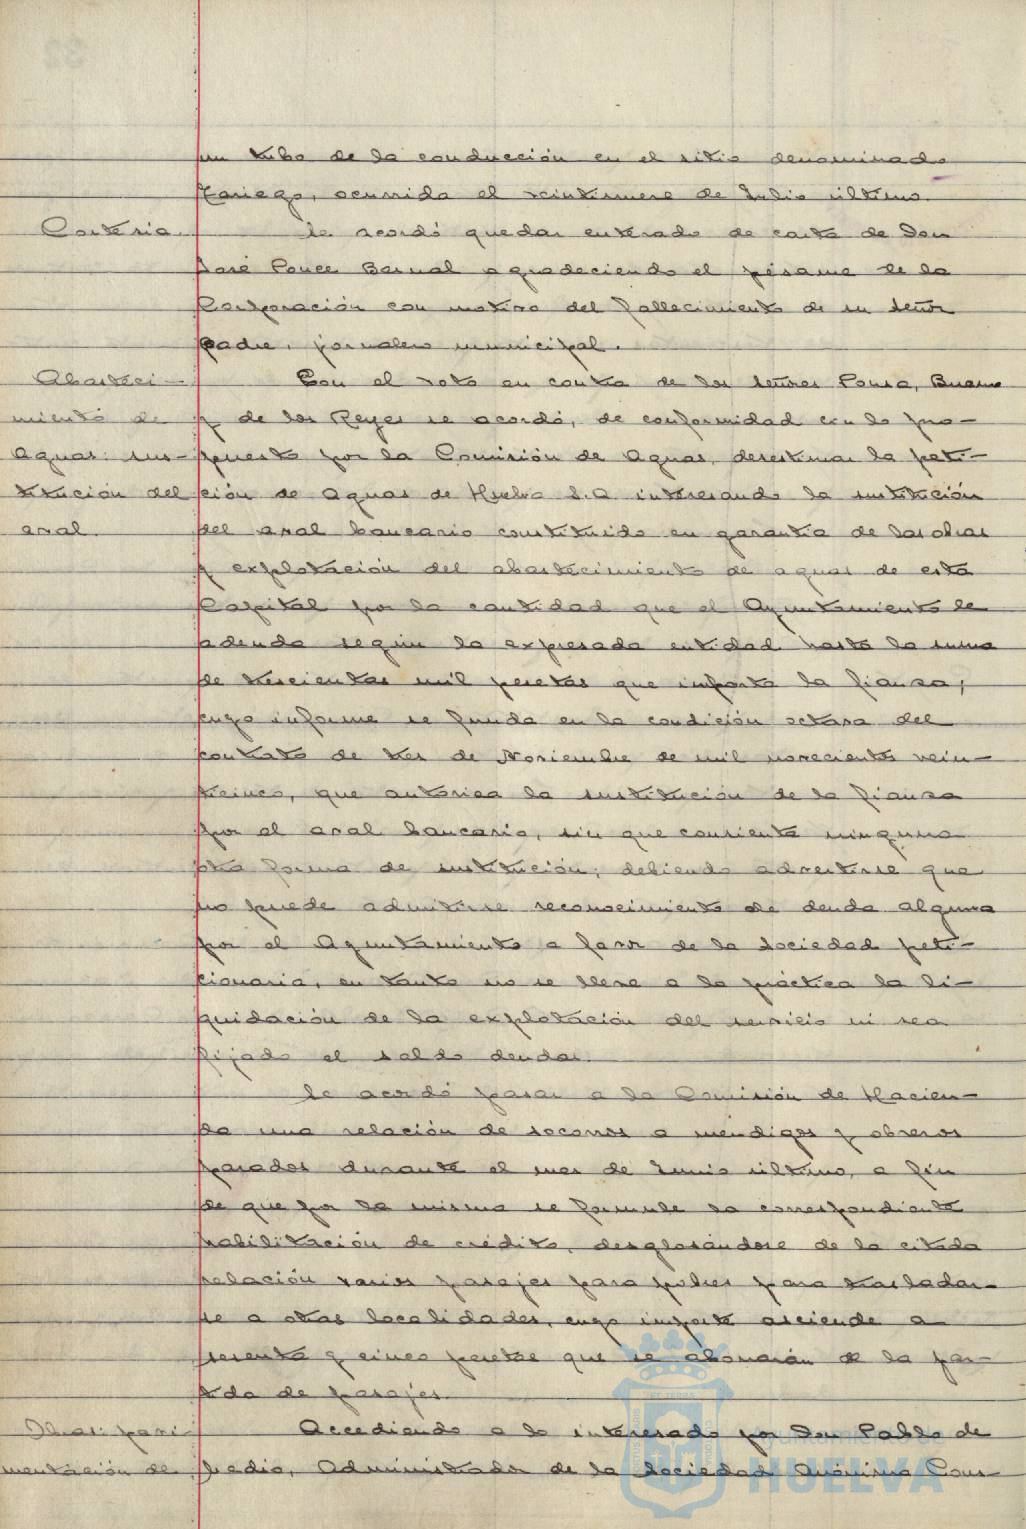 un tubo de la conducción en el sitio denominado
ocurrida el veintinueve de Julio último.
Cortesía. Se acordó quedar enterado de carta de Don
José Ponce Bernal agradeciendo el pésame de la
Corporación con motivo del fallecimiento de su señor
padre, jornalero municipal.
Abasteci- Con el voto en contra de los señores Ponce, Bueno
miento de y de los Reyes se acordó, de conformidad con lo pro-
aguas: sus- puesto por la Comisión de Aguas, desestimar la peti-
titución del ción de Aguas de Huelva S.A interesando la sustitución
aval. del aval bancario constituido en garantía de las obras
y explotación del abastecimiento de aguas de esta
Capital por la cantidad que el Ayuntamiento le
adeuda según la expresada entidad hasta la suma
de trescientas mil pesetas que importa la fianza;
cuyo informe se funda en la condición octava del
contrato de tres de Noviembre de mil novecientos vein-
ticinco, que autoriza la sustitución de la fianza
por el aval bancario, sin que consienta ninguna
otra forma de sustitución; debiendo advertirse que
no puede admitirse reconocimiento de deuda alguna
por el Ayuntamiento a favor de la Sociedad peti-
cionaria, en tanto no se lleve a la práctica la li-
quidación de la explotación del servicio ni sea
fijado el saldo deudor.
Se acordó pasar a la Comisión de Hacien-
da una relación de socorros a mendigos y obreros
parados durante el mes de Junio último, a fin
de que por la misma se formule la correspondiente
habilitación de crédito, desglosándose de la citada
relación varios pasajes para pobres para trasladar-
se a otras localidades, cuyo importe asciende a
sesenta y cinco pesetas que se abonarán de la par-
tida de pasajes.
Obras: pavi- Accediendo a lo interesado por Don Pablo de
mentación de Administrador de la Sociedad Anónima Cons-
Ayuntamiento de
HUELVA